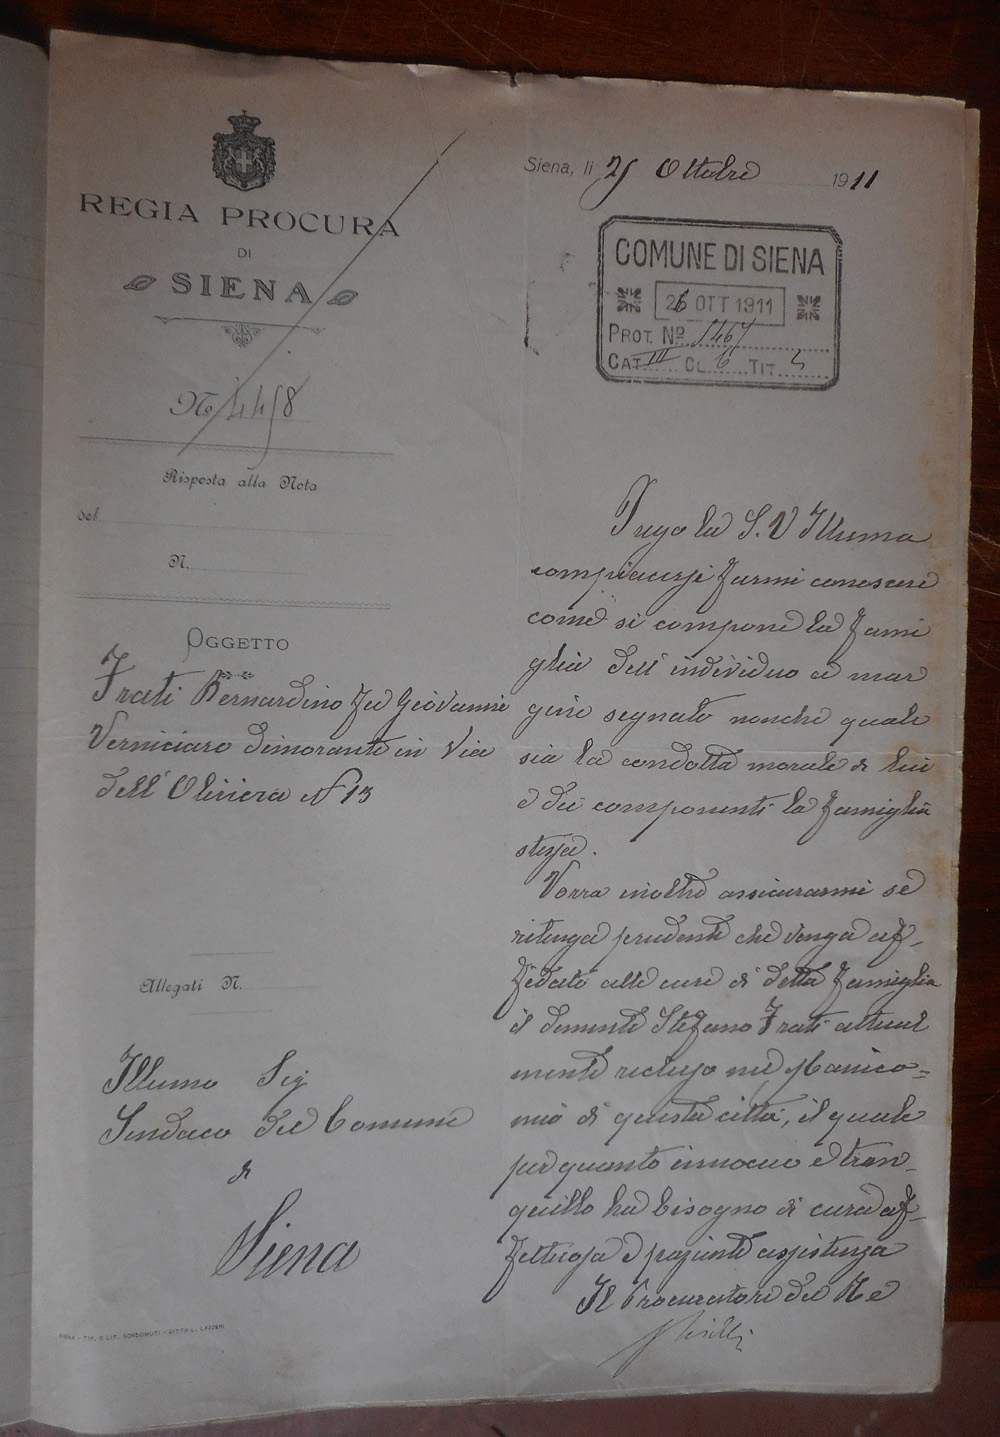 REGIA PROCURA
DI
SIENA
No 4458
Risposta alla Nota
del
N.
OGGETTO
Frati Bernardino fu Giovanni
Verniciaro dimorante in Via
dell' Oliviera N 13
Allegati N.
Illumo Sig
Sindaco del Comune
di
Siena
SIENA - TIP. E LIT. SORDOMUTI - DITTA L. LAZZERI
Siena, li 25 Ottobre 1911
COMUNE DI SIENA
26 OTT 1911
PROT. No
CAT. III CL. 6 TIT. 5
Prego la S. V Illuma
compiacersi farmi conoscere
come si compone la fami
glia dell' individuo a mar
gine segnato nonché quale
sia la condotta morale di lui
e dei componenti la famiglia
stessa.
Vorrà inoltre assicurarmi se
ritenga prudente che venga af-
fidato alle cure di detta famiglia
il demente Stefano Frati attual
mente recluso nel Manico=
mio di questa città, il quale
per quanto innocuo e tran-
quillo ha bisogno di cura af-
fettuosa e paziente assistenza
Il Procuratore del Re